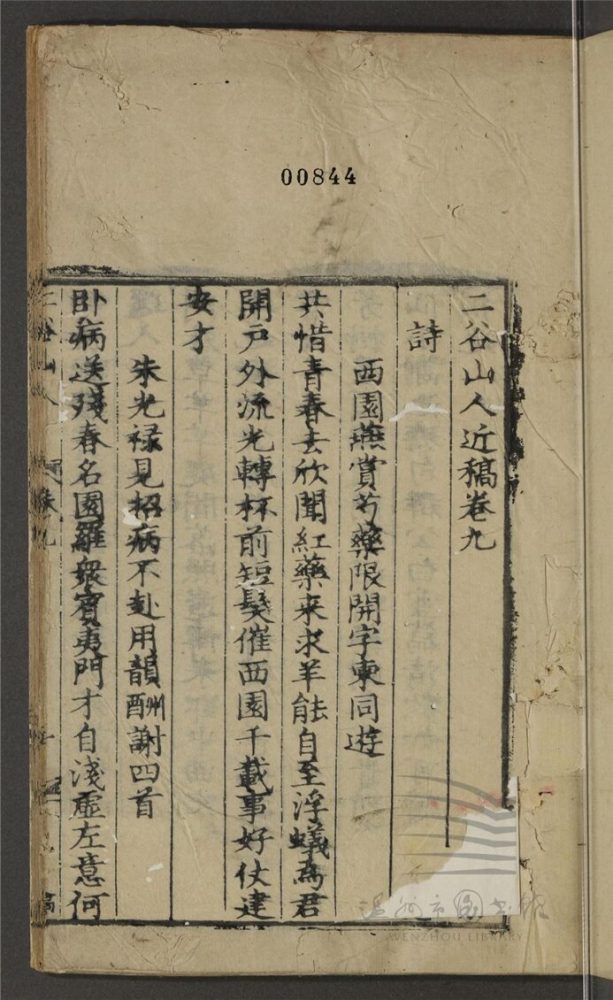 00844
二谷山人近稿卷九
詩
西園燕賞芍藥限開字柬同遊
共惜青春去欣聞紅藥来求羊能自至浮蟻為君
開戶外流光轉杯前短髮催西園千載事好仗建
安才
朱光祿見招病不赴用韻酬謝四首
卧病送殘春名園羅衆賓夷門才自淺虛左意何
二谷山人 卷九
温州市图书馆
WENZHOU LIBRARY